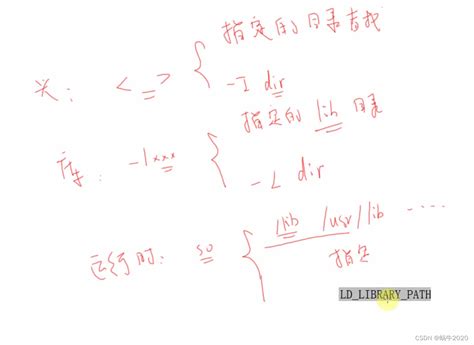 指定的目录查找
头: < >
-I dir
指定的 lib 目录
库: -lxxx
-L dir
运行时: so
/lib /usr/lib ....
指定
LD_LIBRARY_PATH
CSDN @蜗牛2020